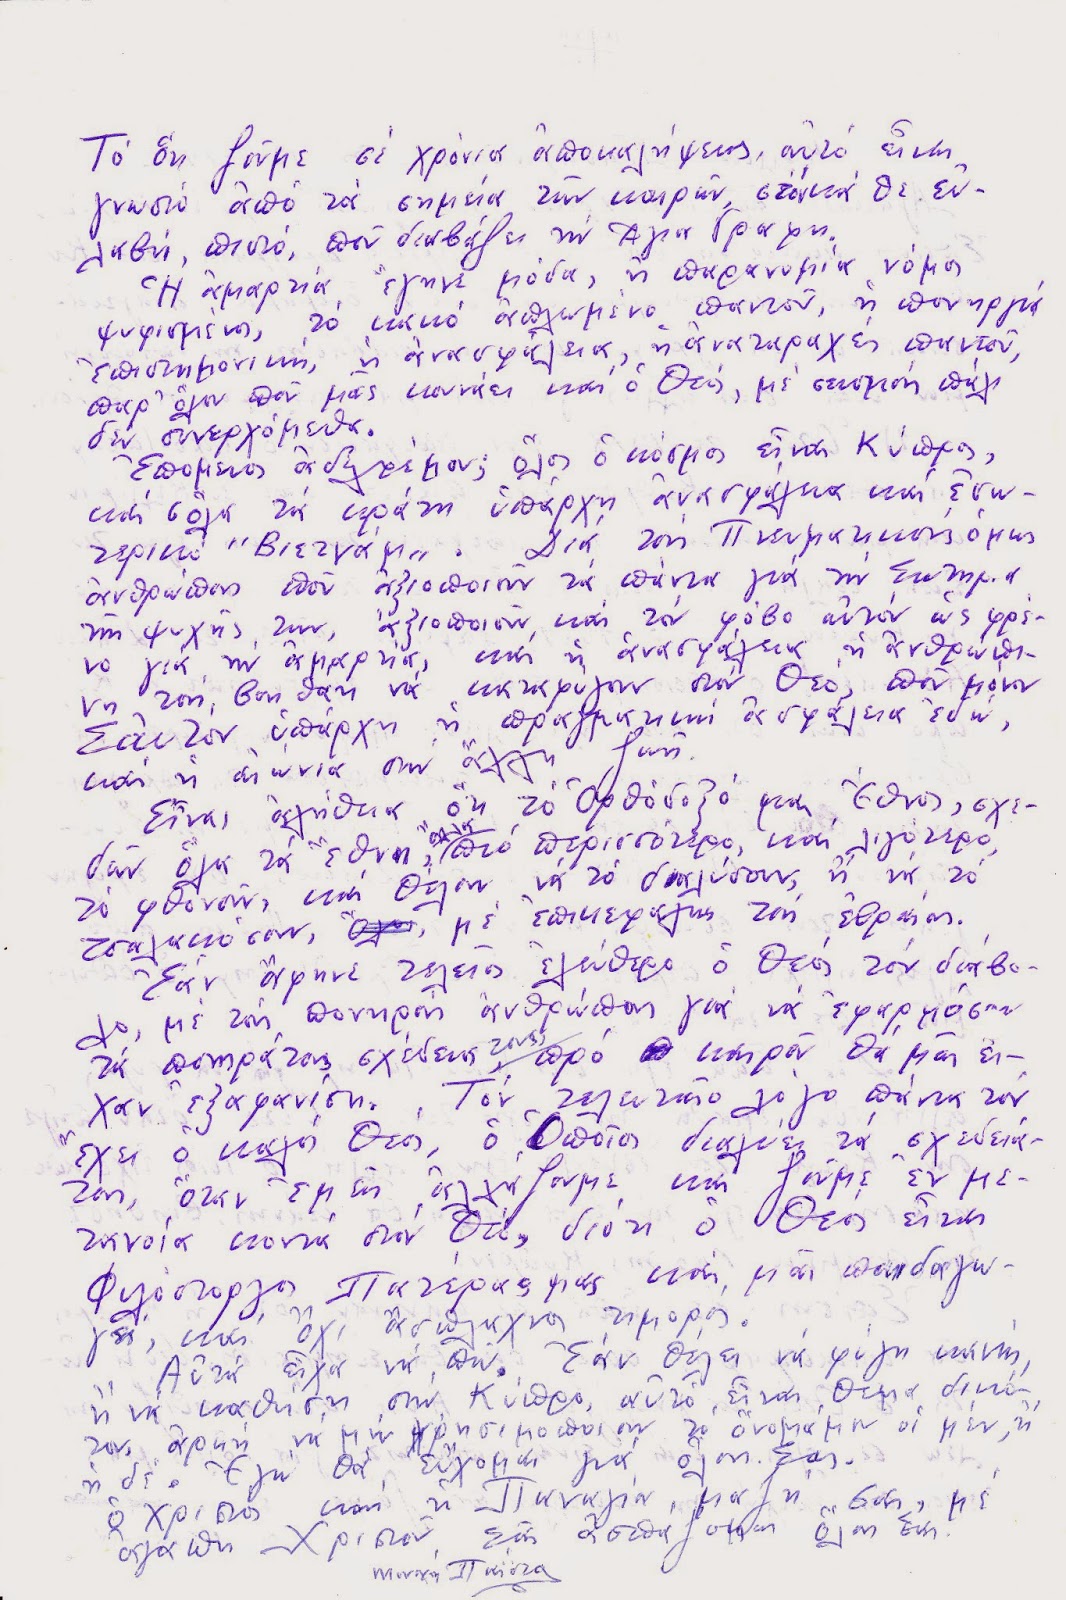 Τό ὅτι ζοῦμε σέ χρόνια ἀποκαλήψεως, αὐτό εἶναι
γνωστό ἀπό τά σημεία τῶν καιρῶν, στόν κάθε εὐ-
λαβή, πιστό, πού διαβάζει τήν Ἁγία Γραφή.
Ἡ ἁμαρτία ἔγηνε μόδα, ἡ παρανομία νόμος
ψυφισμένος, τό κακό ἁπλωμένο παντοῦ, ἡ πονηργιά
ἐπιστημονική, ἡ ἀνασφάλεια, ἡ ἀναταραχές παντοῦ,
παρ' ὅλον πού μᾶς κουνάει καί ὁ Θεός, μέ σεισμούς πάλι
δέν συνερχόμεθα.
Ἑπομένος ἀδελφέ μου, ὅλος ὁ κόσμος εἶναι Κύπρος,
καί σ' ὅλα τά κράτη ὑπάρχη ἀνασφάλεια καί ἐσω-
τερικό "Βιετνάμ". Διά τούς Πνευματικούς ὅμως
ἀνθρώπους πού ἀξιοποιοῦν τά πάντα γιά τήν Σωτηρία
τῆς ψυχῆς των, ἀξιοποιοῦν καί τόν φόβο αὐτόν ὡς φρέ-
νο γιά τήν ἁμαρτία, καί ἡ ἀνασφάλεια ἡ ἀνθρώπι-
νη τούς βοηθάη νά καταφύγουν στόν Θεό, πού μόνον
Σ' αὐτόν ὑπάρχη ἡ πραγματική ἀσφάλεια ἐδῶ,
καί ἡ αἰώνια στήν ἄλλη ζωή.
Εἶναι ἀλήθεια ὅτι τό Ὀρθόδοξό μας Ἔθνος, σχε-
δόν ὅλα τά ἔθνη, ἄλλα πιό περισσότερο, καί λιγότερο,
τό φθονοῦν, καί θέλουν νά τό διαλύσουν, ἤ νά τό
τσαλακόσουν, μέ ἐπικεφαλής τούς ἑβραίους.
Ἐάν ἄφηνε τελείος ἐλεύθερο ὁ Θεός τόν διάβο-
λο, μέ τούς πονηρούς ἀνθρώπους γιά νά ἐφαρμόσουν
τά πονηρά τους σχέδεια τους, πρό καιρού θά μᾶς εἶ-
χαν ἐξαφανίση. Τόν τελευταῖο λόγο πάντα τόν
ἔχει ὁ καλός Θεός, ὁ Ὁποῖος διαλύει τά σχεδειά-
τους, ὅταν ἐμεῖς ἀλλάζουμε καί ζοῦμε ἐν με-
τανοία κοντά στόν Θεό, διότι ὁ Θεός εἶναι
Φιλόστοργος Πατέρας μας καί μᾶς παιδαγω-
γεῖ, καί ὄχι ἄσπλαχνος τιμορός.
Αὐτά εἶχα νά πῶ. Ἐάν θέλει νά φύγη κανείς,
ἤ νά καθήση στήν Κύπρο, αὐτό εἶναι θέμα δικό-
του, ἀρκεῖ νά μήν χρησιμοποιοῦν τό ὄνομάμου οἱ μέν, ἤ
ἡ δέ. Ἐγώ θά εὔχομαι γιά ὅλους Σας.
ὁ Χριστός καί ἡ Παναγία μαζή σας, μέ
ἀγάπη Χριστοῦ, σᾶς ἀσπάζομαι ὅλους Σας.
Μοναχός Παΐσιος